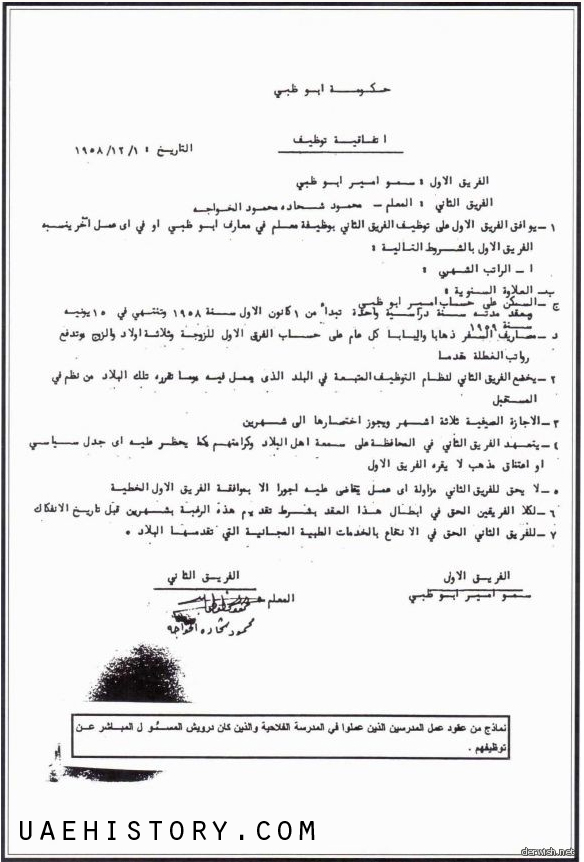 حكومة ابو ظبي
اتفاقية توظيف
التاريخ : ١٩٥٨/١٢/١
الفريق الاول : سمو امير ابو ظبي
الفريق الثاني : المعلم - محمود شحاده محمود الخواجه
١ - يوافق الفريق الاول على توظيف الفريق الثاني بوظيفة معلم في معارف ابو ظبي او في اى عمل آخر ينسبه
الفريق الاول بالشروط التالية :
ا - الراتب الشهري :
ب - العلاوة السنوية :
ج - السكن على حساب امير ابو ظبي
وبعقد مدته سنة دراسية واحدة تبدأ من ١ كانون الاول سنة ١٩٥٨ وتنتهي في ١٥ يونيه
سنة ١٩٥٩
د - مصاريف السفر ذهابا وايابا كل عام على حساب الفرق الاول للزوجة وثلاثة اولاد والزوج وتدفع
رواتب العطلة مقدما
٢ - يخضع الفريق الثاني لنظام التوظيف المتبعة في البلد الذى يعمل فيه وما تقرره تلك البلاد من نظم في
المستقبل
٣ - الاجازة الصيفية ثلاثة اشهر ويجوز اختصارها الى شهرين
٤ - يتعهد الفريق الثاني في المحافظة على سمعة اهل البلاد وكرامتهم كما يحظر عليه اى جدل سياسي
او اعتناق مذهب لا يقره الفريق الاول
٥ - لا يحق للفريق الثاني مزاولة اى عمل يتقاضى عليه اجورا الا بموافقة الفريق الاول الخطية
٦ - لكلا الفريقين الحق في ابطال هذا العقد بشرط تقديم هذه الرغبة بشهرين قبل تاريخ الانفكاك
٧ - للفريق الثاني الحق في الانتفاع بالخدمات الطبية المجانية التي تقدمها البلاد .
الفريق الاول
سمو امير ابو ظبي
الفريق الثاني
المعلم
محمود شحاده الخواجه
نماذج من عقود عمل المدرسين الذين عملوا في المدرسة الفلاحية والذين كان درويش المسئول المباشر عن
توظيفهم .
UAEHISTORY.COM
derwish.net